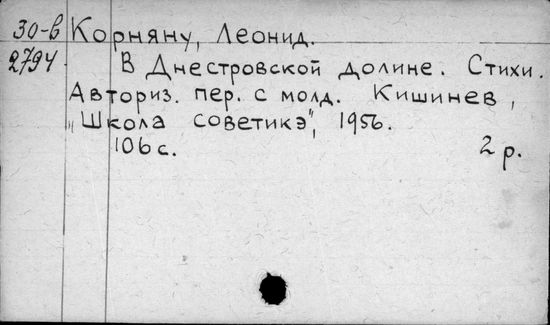 30-в Корняну, Леонид.
2794. В Днестровской долине. Стихи.
Авториз. пер. с молд. Кишинев,
„Школа советикэ", 1956.
106 с. 2 р.